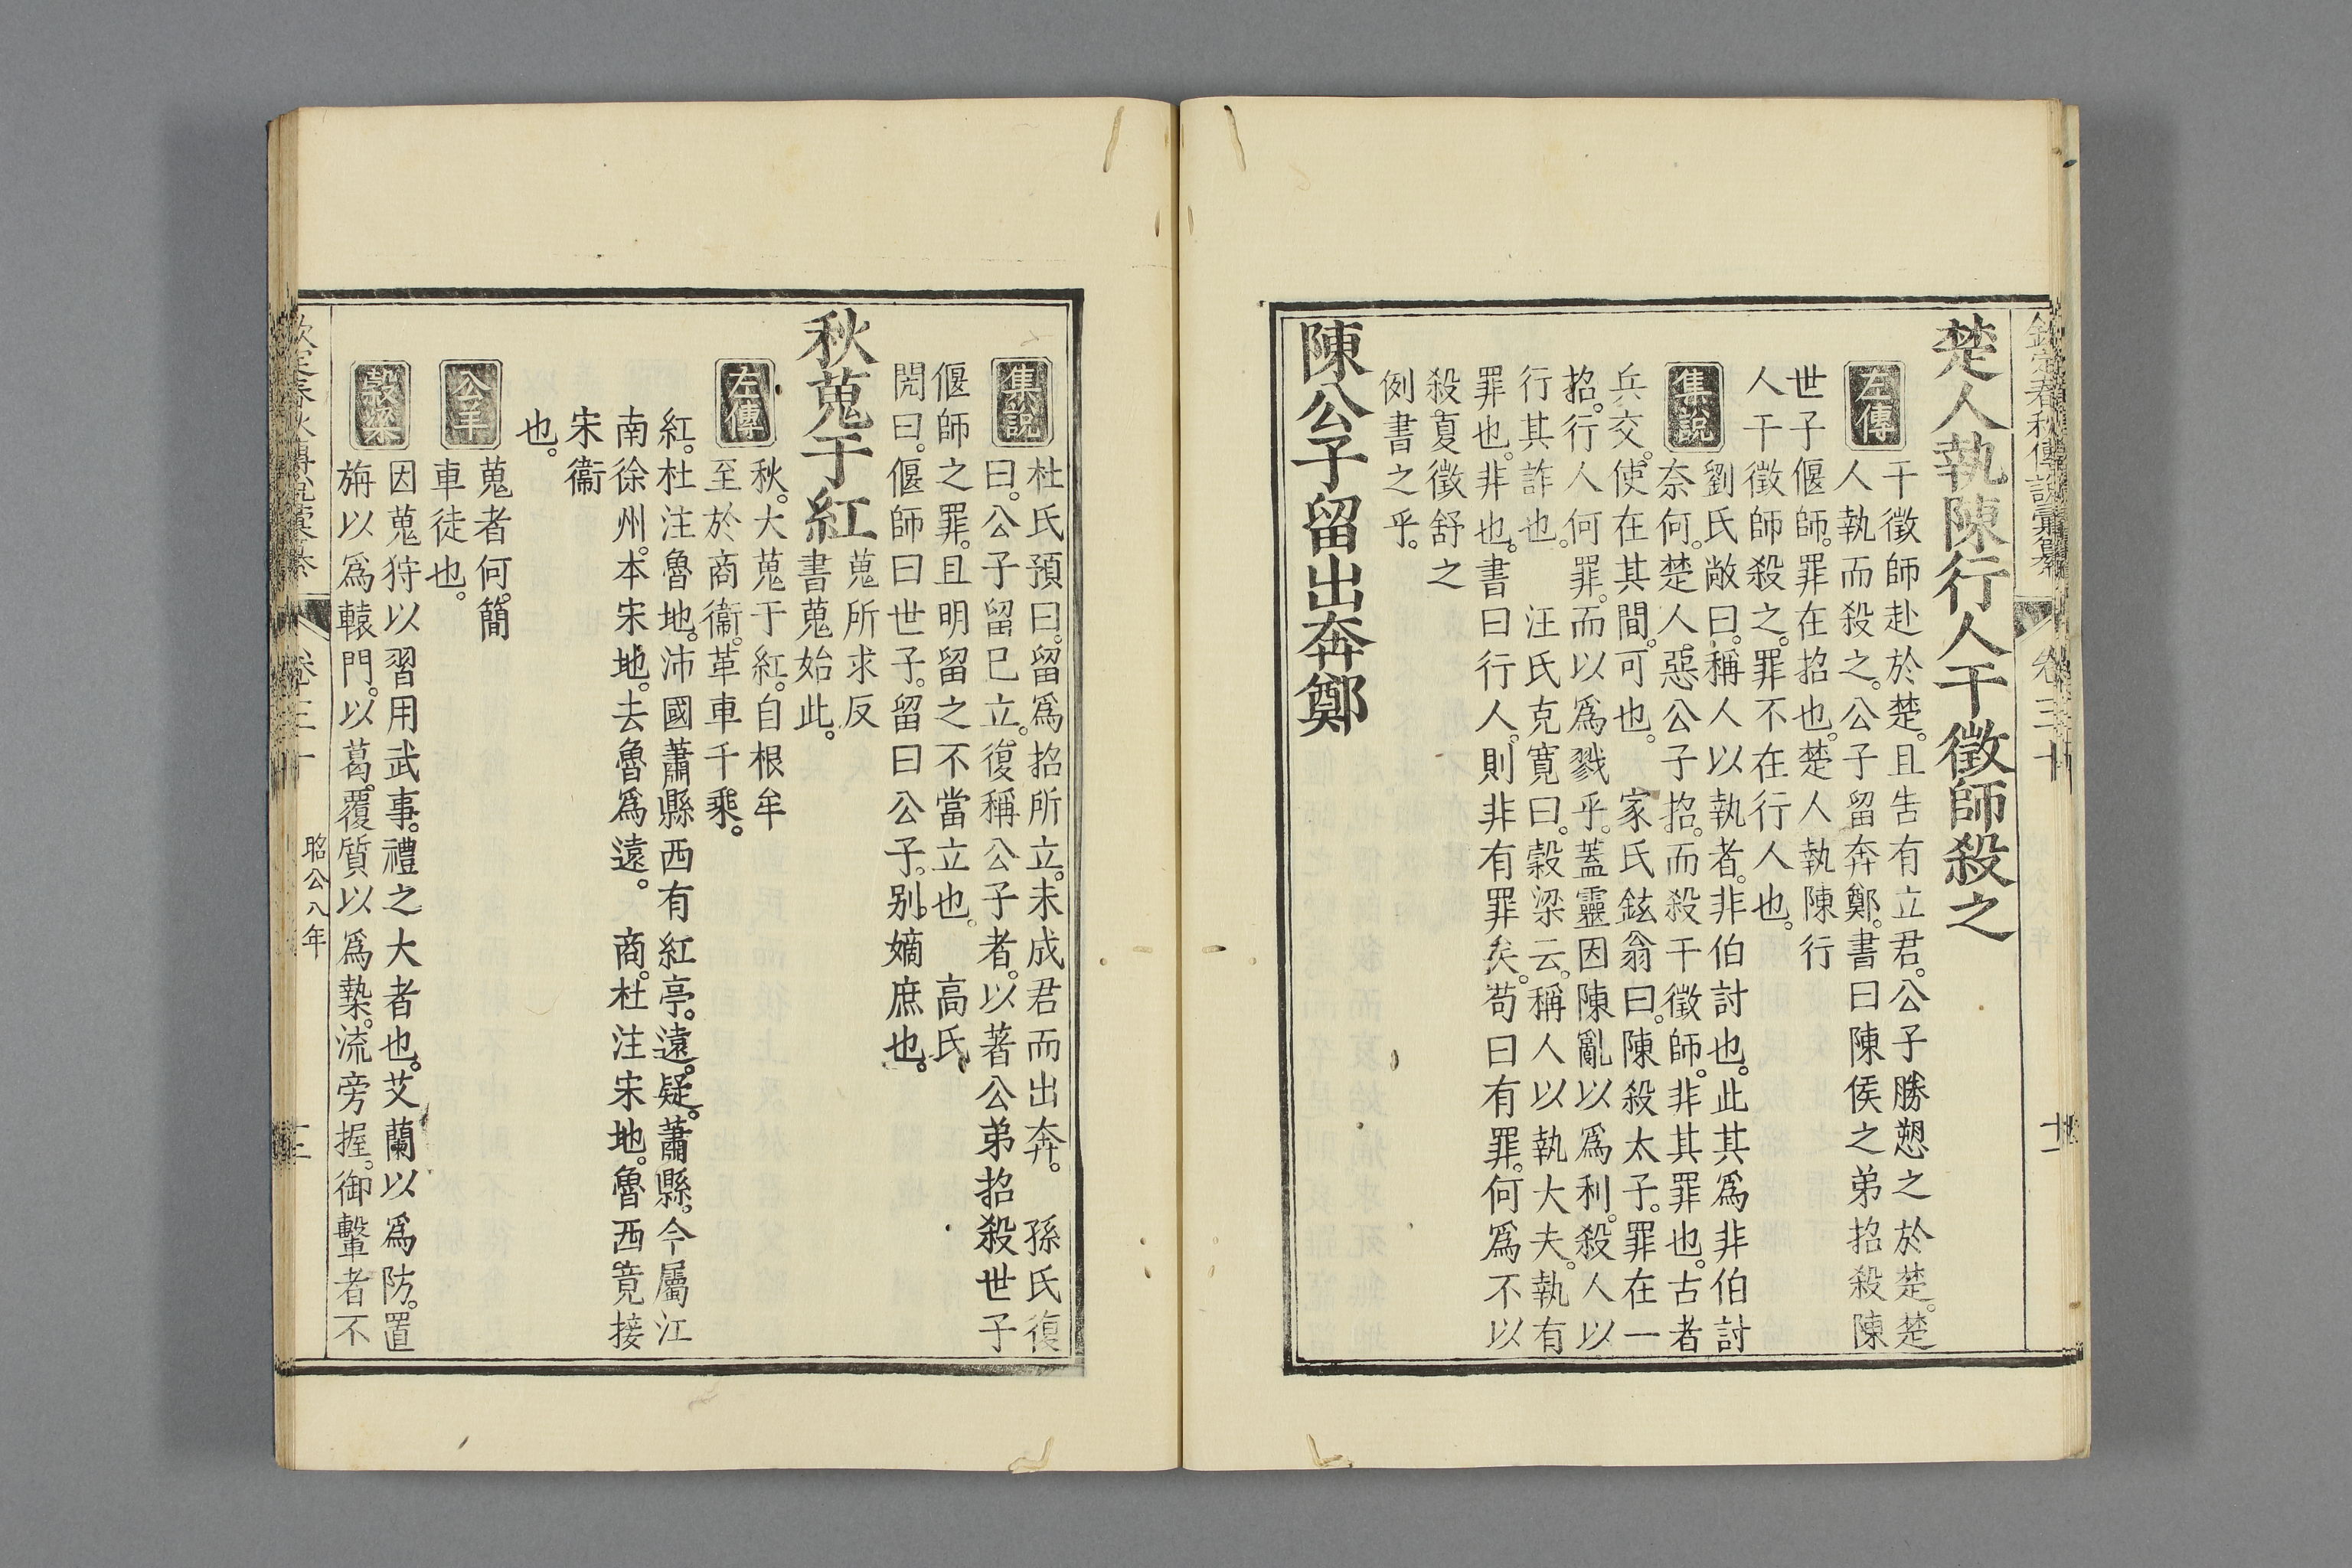 欽定春秋傳說彙纂 卷三十 十一
楚人執陳行人干徵師殺之
左傳 干徵師赴於楚。且告有立君。公子勝愬之於楚。楚
人執而殺之。公子留奔鄭。書曰陳侯之弟招殺陳
世子偃師。罪在招也。楚人執陳行
人干徵師殺之。罪不在行人也。
集說 劉氏敞曰。稱人以執者。非伯討也。此其爲非伯討
奈何。楚人。惡公子招。而殺干徵師。非其罪也。古者
兵交。使在其間。可也。 家氏鉉翁曰。陳殺太子。罪在一
招。行人何罪。而以爲戮乎。蓋靈因陳亂以爲利。殺人以
行其詐也。 汪氏克寬曰。穀梁云。稱人以執大夫。執有
罪也。非也。書曰行人。則非有罪矣。苟曰有罪。何爲不以
殺夏徵舒之
例書之乎。
陳公子留出奔鄭
集說 杜氏預曰。留爲招所立。未成君而出奔。 孫氏復
曰。公子留已立。復稱公子者。以著公弟招殺世子
偃師之罪。且明留之不當立也。 高氏
閌曰。偃師曰世子。留曰公子。別嫡庶也。
秋蒐于紅
蒐所求反
書蒐始此。
左傳 秋。大蒐于紅。自根牟
至於商衞。革車千乘。
紅。杜注魯地。沛國蕭縣西有紅亭。遠。疑。蕭縣。今屬江
南徐州。本宋地。去魯爲遠。 商。杜注宋地。魯西竟接
宋衞
也。
公羊 蒐者何。簡
車徒也。
穀梁 因蒐狩以習用武事。禮之大者也。艾蘭以爲防。置
旃以爲轅門。以葛。覆質以爲槷。流旁握。御轚者不
欽定春秋傳說彙纂 卷三十 昭公八年